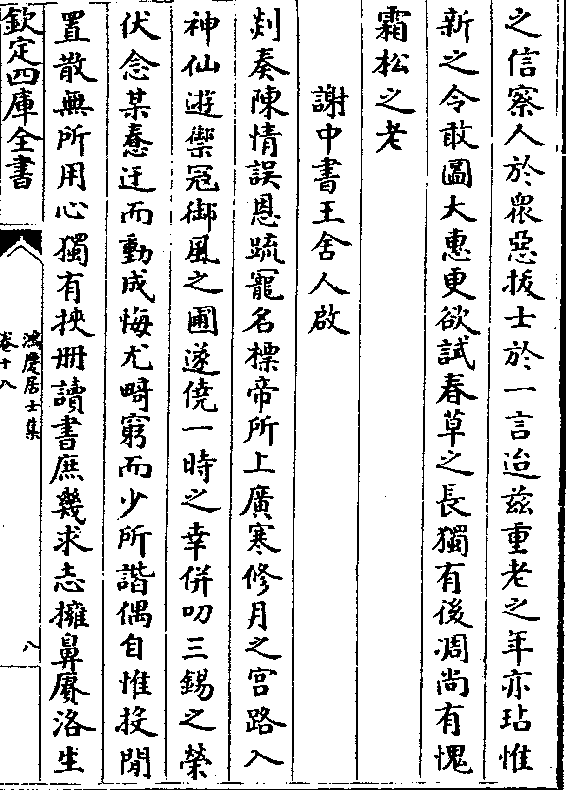 之信察人於衆惡拔士於一言迨兹重老之年亦玷惟
新之令敢圖大惠更欲試春草之長獨有後凋尚有愧
霜松之老
謝中書王舍人啟
剡奏陳情誤恩疏寵名標帝所上廣寒修月之宫路入
神仙遊禦冠御風之圃遂僥一時之幸併叨三錫之榮
伏念某惷迂而動成悔尤畸窮而少所諧偶自惟投閒
置散無所用心獨有挾册讀書庶幾求志擁鼻賡洛生
欽定四庫全書
鴻慶居士集
卷十八
八